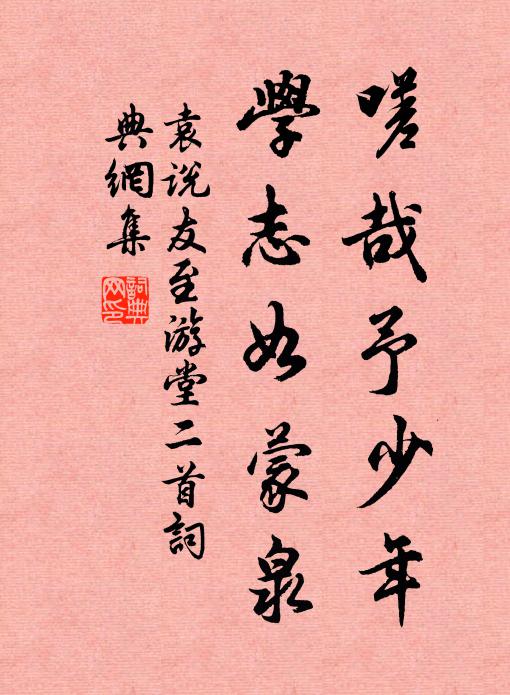 嗟哉予少年
學志如蒙泉
袁说友至游堂二首詞
典網集
詞典
网印